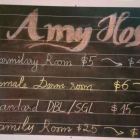 Amy Hos
Dormitory Room $5
Female Dorm room $6
Standard DBL/SGL $15
Family Room $25